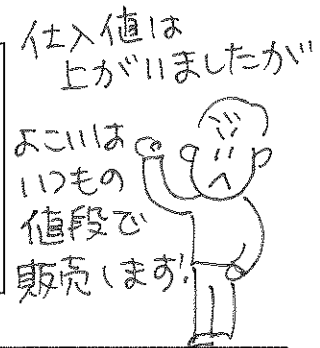 仕入値は
上がりましたが
よこいは
いつもの
値段で
販売します!